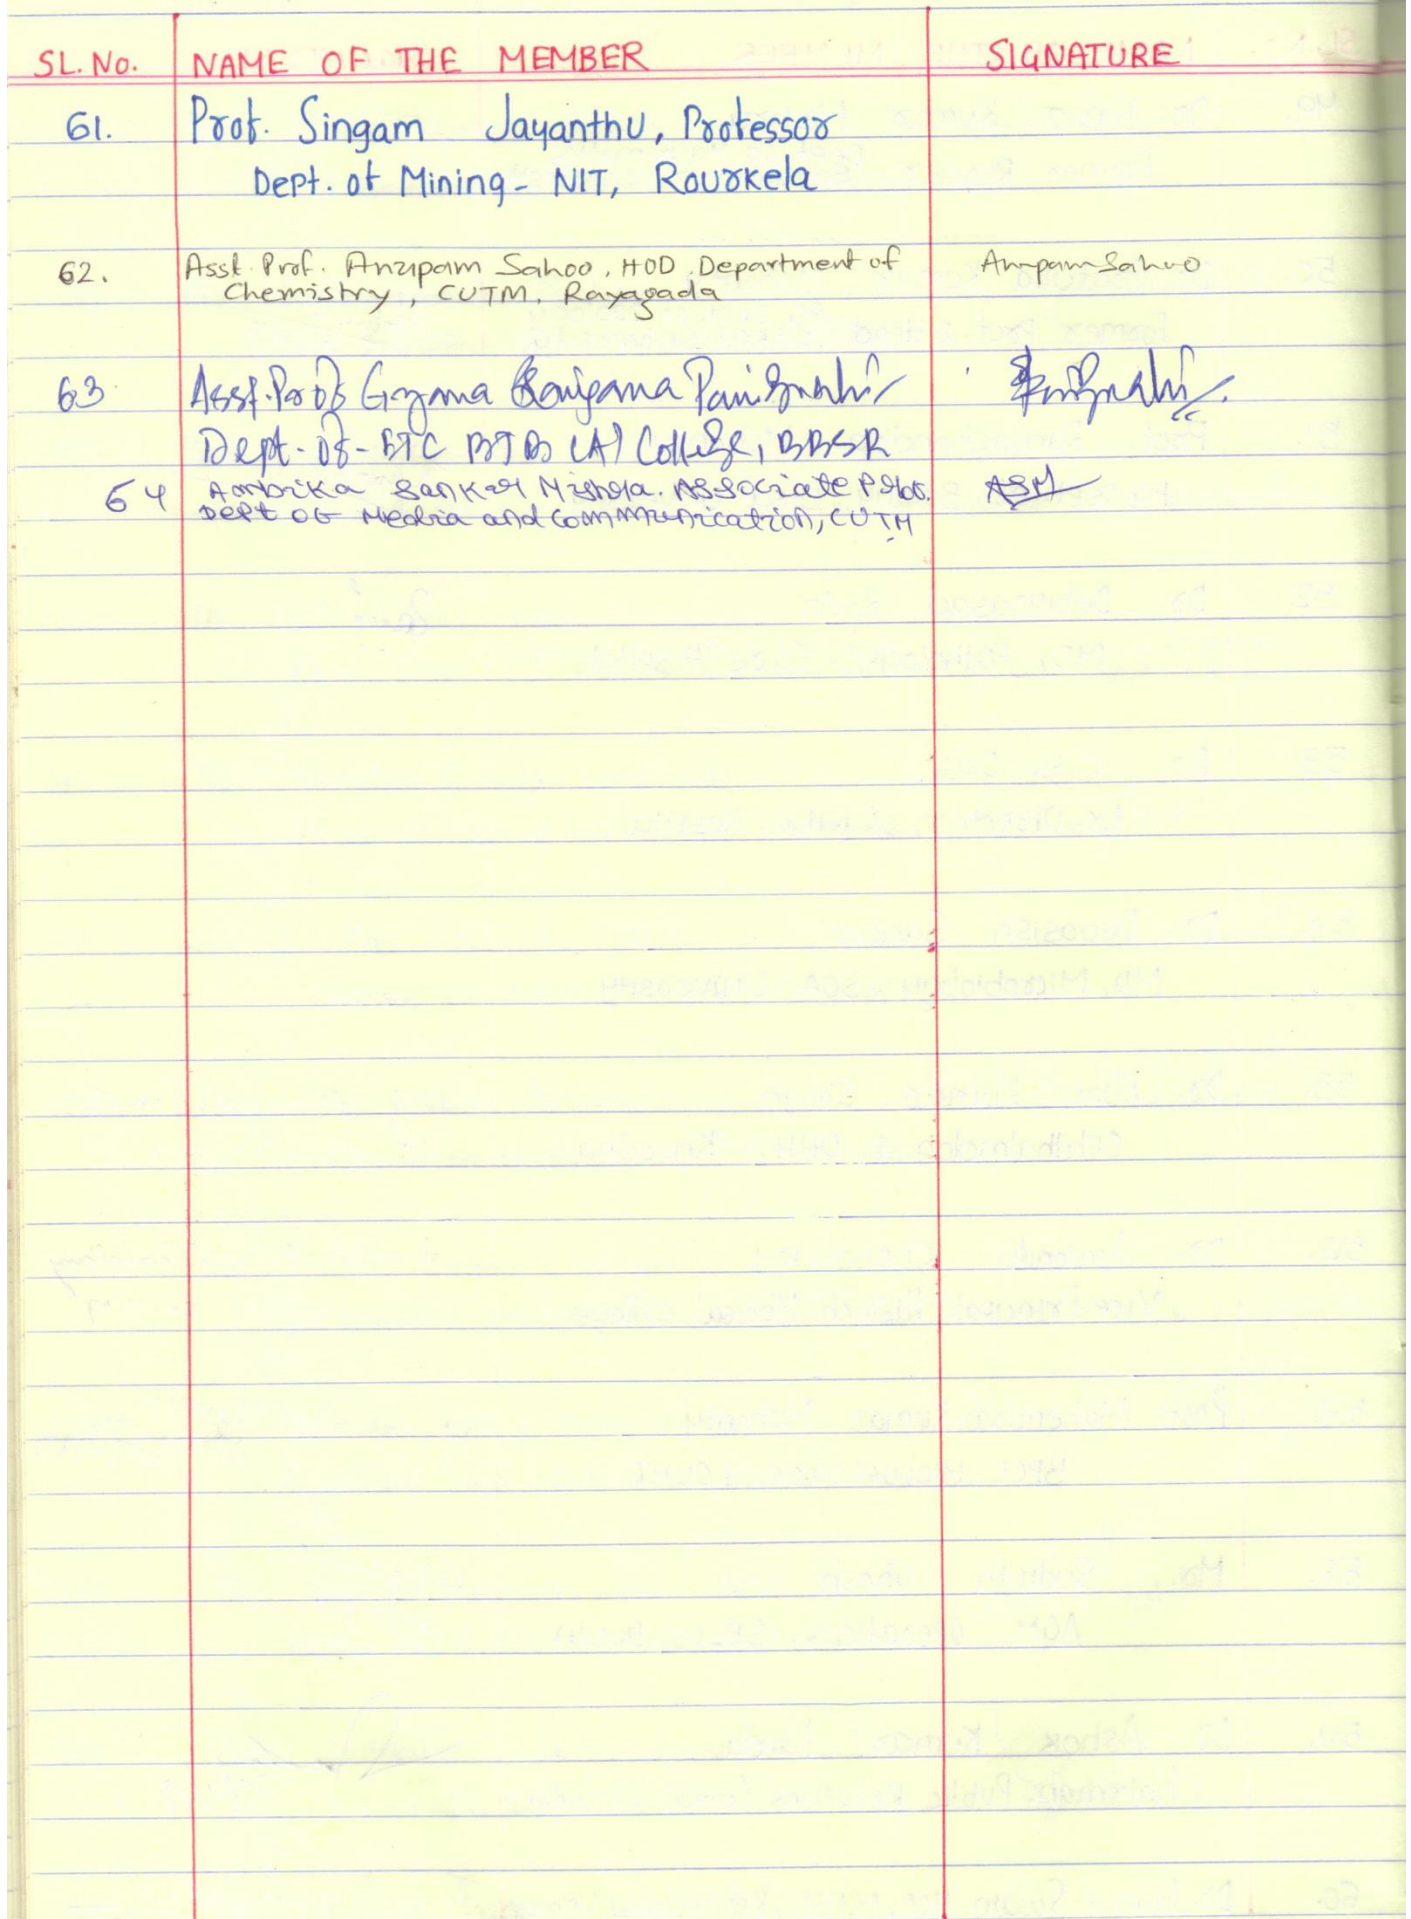 SL. No. NAME OF THE MEMBER SIGNATURE
61. Prof. Singam Jayanthu, Professor
Dept. of Mining - NIT, Rourkela
62. Asst. Prof. Anupam Sahoo, HOD, Department of Anupam Sahoo
Chemistry, CUTM, Rayagada
63 Asst. Prof Gyana Ranjana Panigrahi Panigrahi
Dept. of - ETC BJB (A) College, BBSR
64 Ambika Sankar Mishra. Associate Prof. ASM
Dept of Media and Communication, CUTM